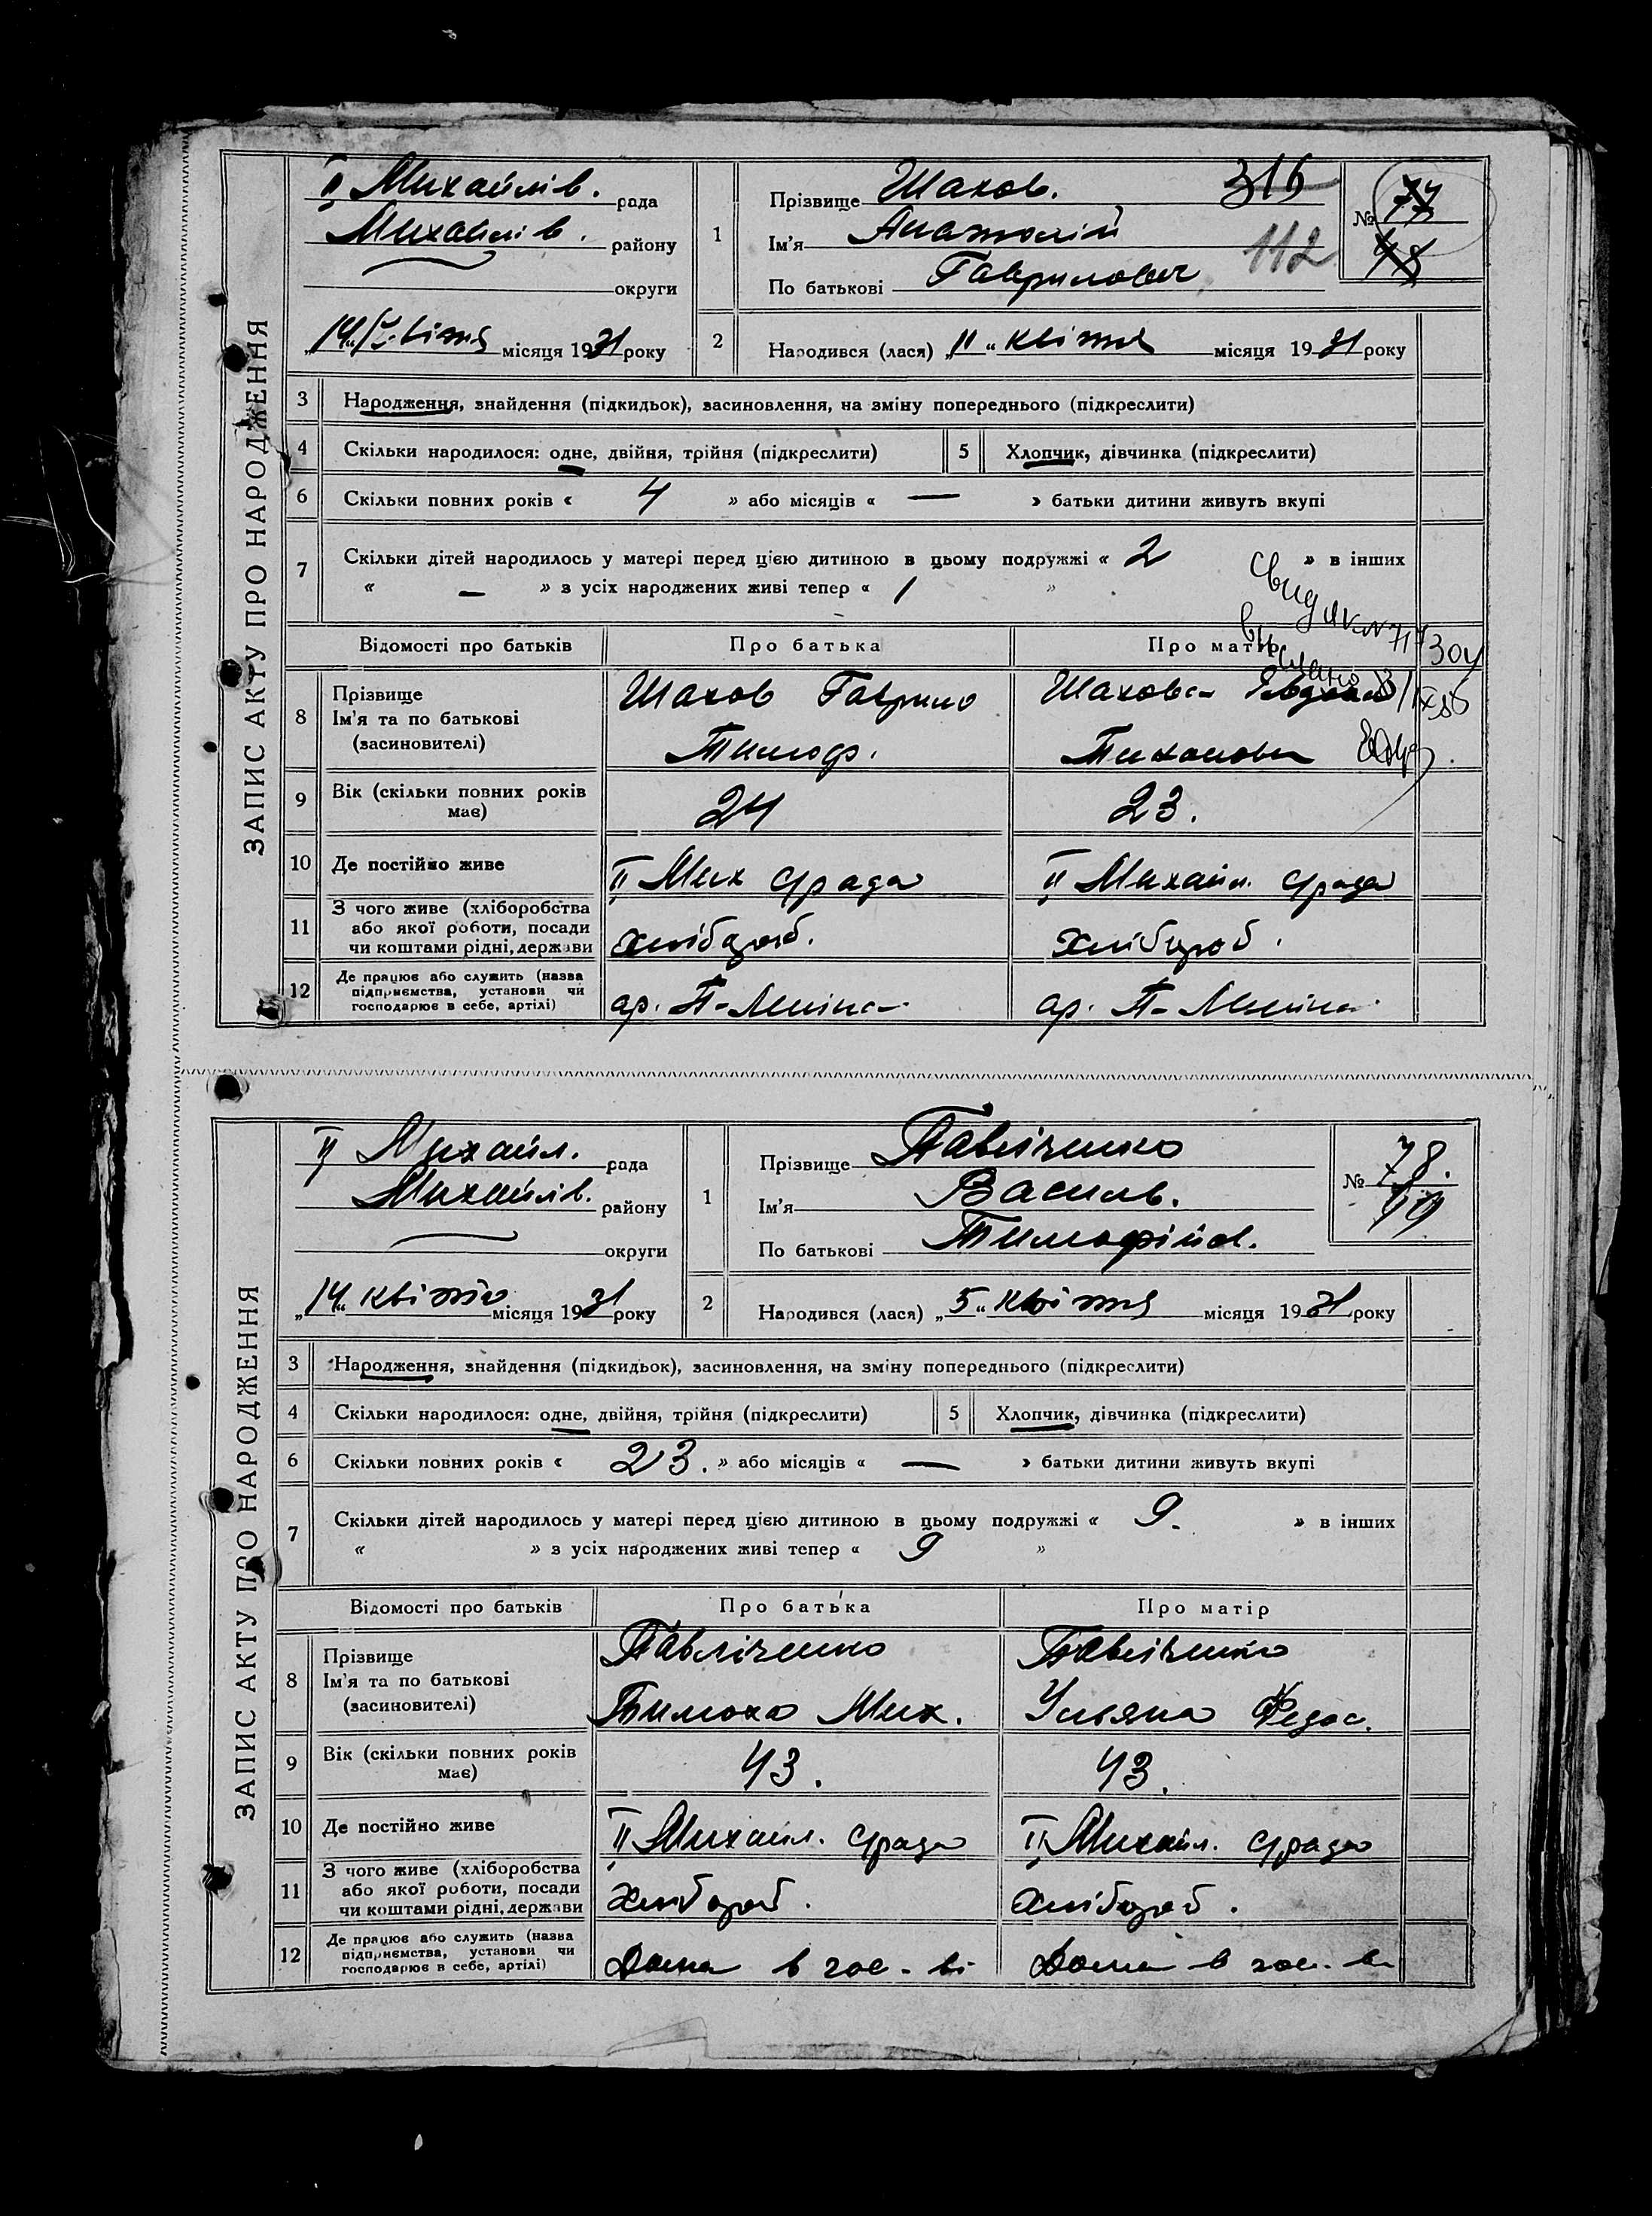 ЗАПИС АКТУ ПРО НАРОДЖЕННЯ
II Михайлів. рада
Михайлів. району
округи
„14“ квітня місяця 1931 року
1
Прізвище Шахов. 316
Ім'я Анатолій
По батькові Гаврилович 112
№ 77
78
2 Народився (лася) „11“ квітня місяця 1931 року
3 Народження, знайдення (підкидьок), засиновлення, на зміну попереднього (підкреслити)
4 Скільки народилося: одне, двійня, трійня (підкреслити) 5 Хлопчик, дівчинка (підкреслити)
6 Скільки повних років « 4 » або місяців « — » батьки дитини живуть вкупі
7 Скільки дітей народилось у матері перед цією дитиною в цьому подружжі « 2 » в інших
« — » з усіх народжених живі тепер « 1 »
Відомості про батьків Про батька Про матір
8 Прізвище
Ім'я та по батькові
(засиновителі)
Шахов Гаврило
Тимоф.
Шахова
Тихонова
9 Вік (скільки повних років має) 24 23.
10 Де постійно живе II Мих с/рада II Михайл. с/рада
11 З чого живе (хліборобства
або якої роботи, посади
чи коштами рідні, держави
хлібороб. хлібороб.
12 Де працює або служить (назва
підприємства, установи чи
господарює в себе, артілі)
ар. П-Леніна ар. П-Леніна
ЗАПИС АКТУ ПРО НАРОДЖЕННЯ
II Михайл. рада
Михайлів. району
округи
„14“ квітня місяця 1931 року
1
Прізвище Павліченко
Ім'я Василь.
По батькові Тимофійов.
№ 78.
79
2 Народився (лася) „5“ квітня місяця 1931 року
3 Народження, знайдення (підкидьок), засиновлення, на зміну попереднього (підкреслити)
4 Скільки народилося: одне, двійня, трійня (підкреслити) 5 Хлопчик, дівчинка (підкреслити)
6 Скільки повних років « 23. » або місяців « — » батьки дитини живуть вкупі
7 Скільки дітей народилось у матері перед цією дитиною в цьому подружжі « 9. » в інших
« » з усіх народжених живі тепер « 9 »
Відомості про батьків Про батька Про матір
8 Прізвище
Ім'я та по батькові
(засиновителі)
Павліченко
Тимоха Мих.
Павліченко
Ульяна Федос.
9 Вік (скільки повних років має) 43. 43.
10 Де постійно живе II Михайл. с/рада II Михайл. с/рада
11 З чого живе (хліборобства
або якої роботи, посади
чи коштами рідні, держави
хлібороб. хлібороб.
12 Де працює або служить (назва
підприємства, установи чи
господарює в себе, артілі)
Дома в гос-ві Дома в гос-ві